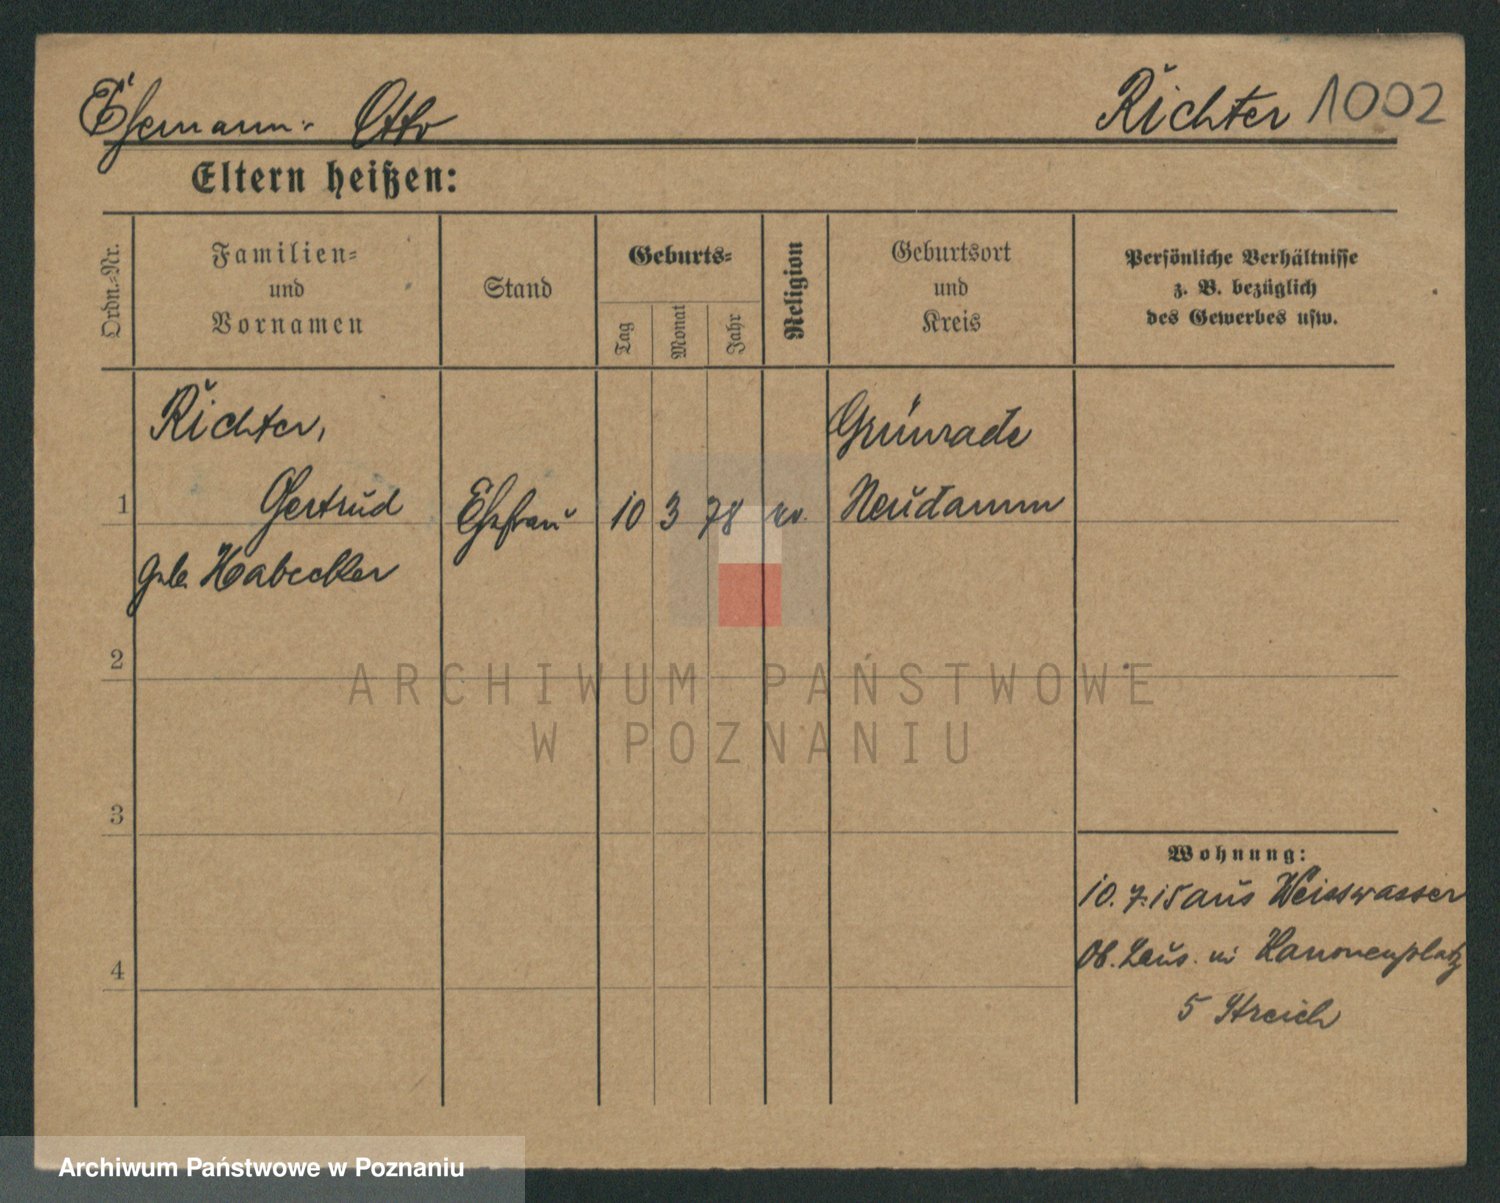 Ehemann: Otto
Richter 1002
Eltern heißen:
Ordn.-Nr.
Familien-
und
Vornamen
Stand
Geburts-
Tag
Monat
Jahr
Religion
Geburtsort
und
Kreis
Persönliche Verhältnisse
z. B. bezüglich
des Gewerbes usw.
Richter,
Gertrud
geb. Habecker
1
Ehefrau
10
3
78
ev.
Grünrade
Neudamm
2
3
4
Wohnung:
10.7.15 aus Weisswasser
Ob. Laus. in
5 Streich
ARCHIWUM PAŃSTWOWE
W POZNANIU
Archiwum Państwowe w Poznaniu